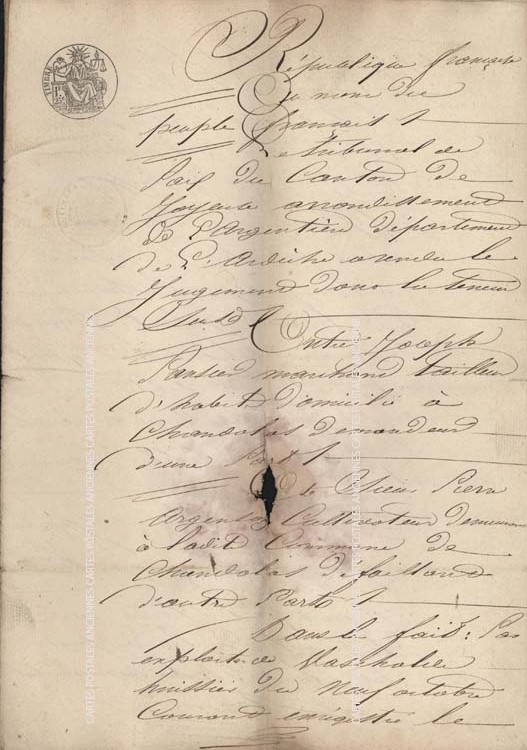 TIMBRE
République française
Au nom du
peuple français
Le tribunal de
Paix du Canton de
Joyeuse arrondissement
de L'Argentière Département
de L'Ardèche a rendu le
Jugement dont la teneur
Suit
Entre Joseph
marchand tailleur
d'habits domicilié à
Chandolas demandeur
d'une Part
Et le Sieur Pierre
Cultivateur demeurant
à ladite Commune de
Chandolas défaillant
d'autre Part
Dans le fait: Par
exploit de
huissier du Neuf octobre
Courant enregistré le
CARTES POSTALES ANCIENNES CARTES POSTALES ANCIENNES CARTES POSTALES ANCIENNES